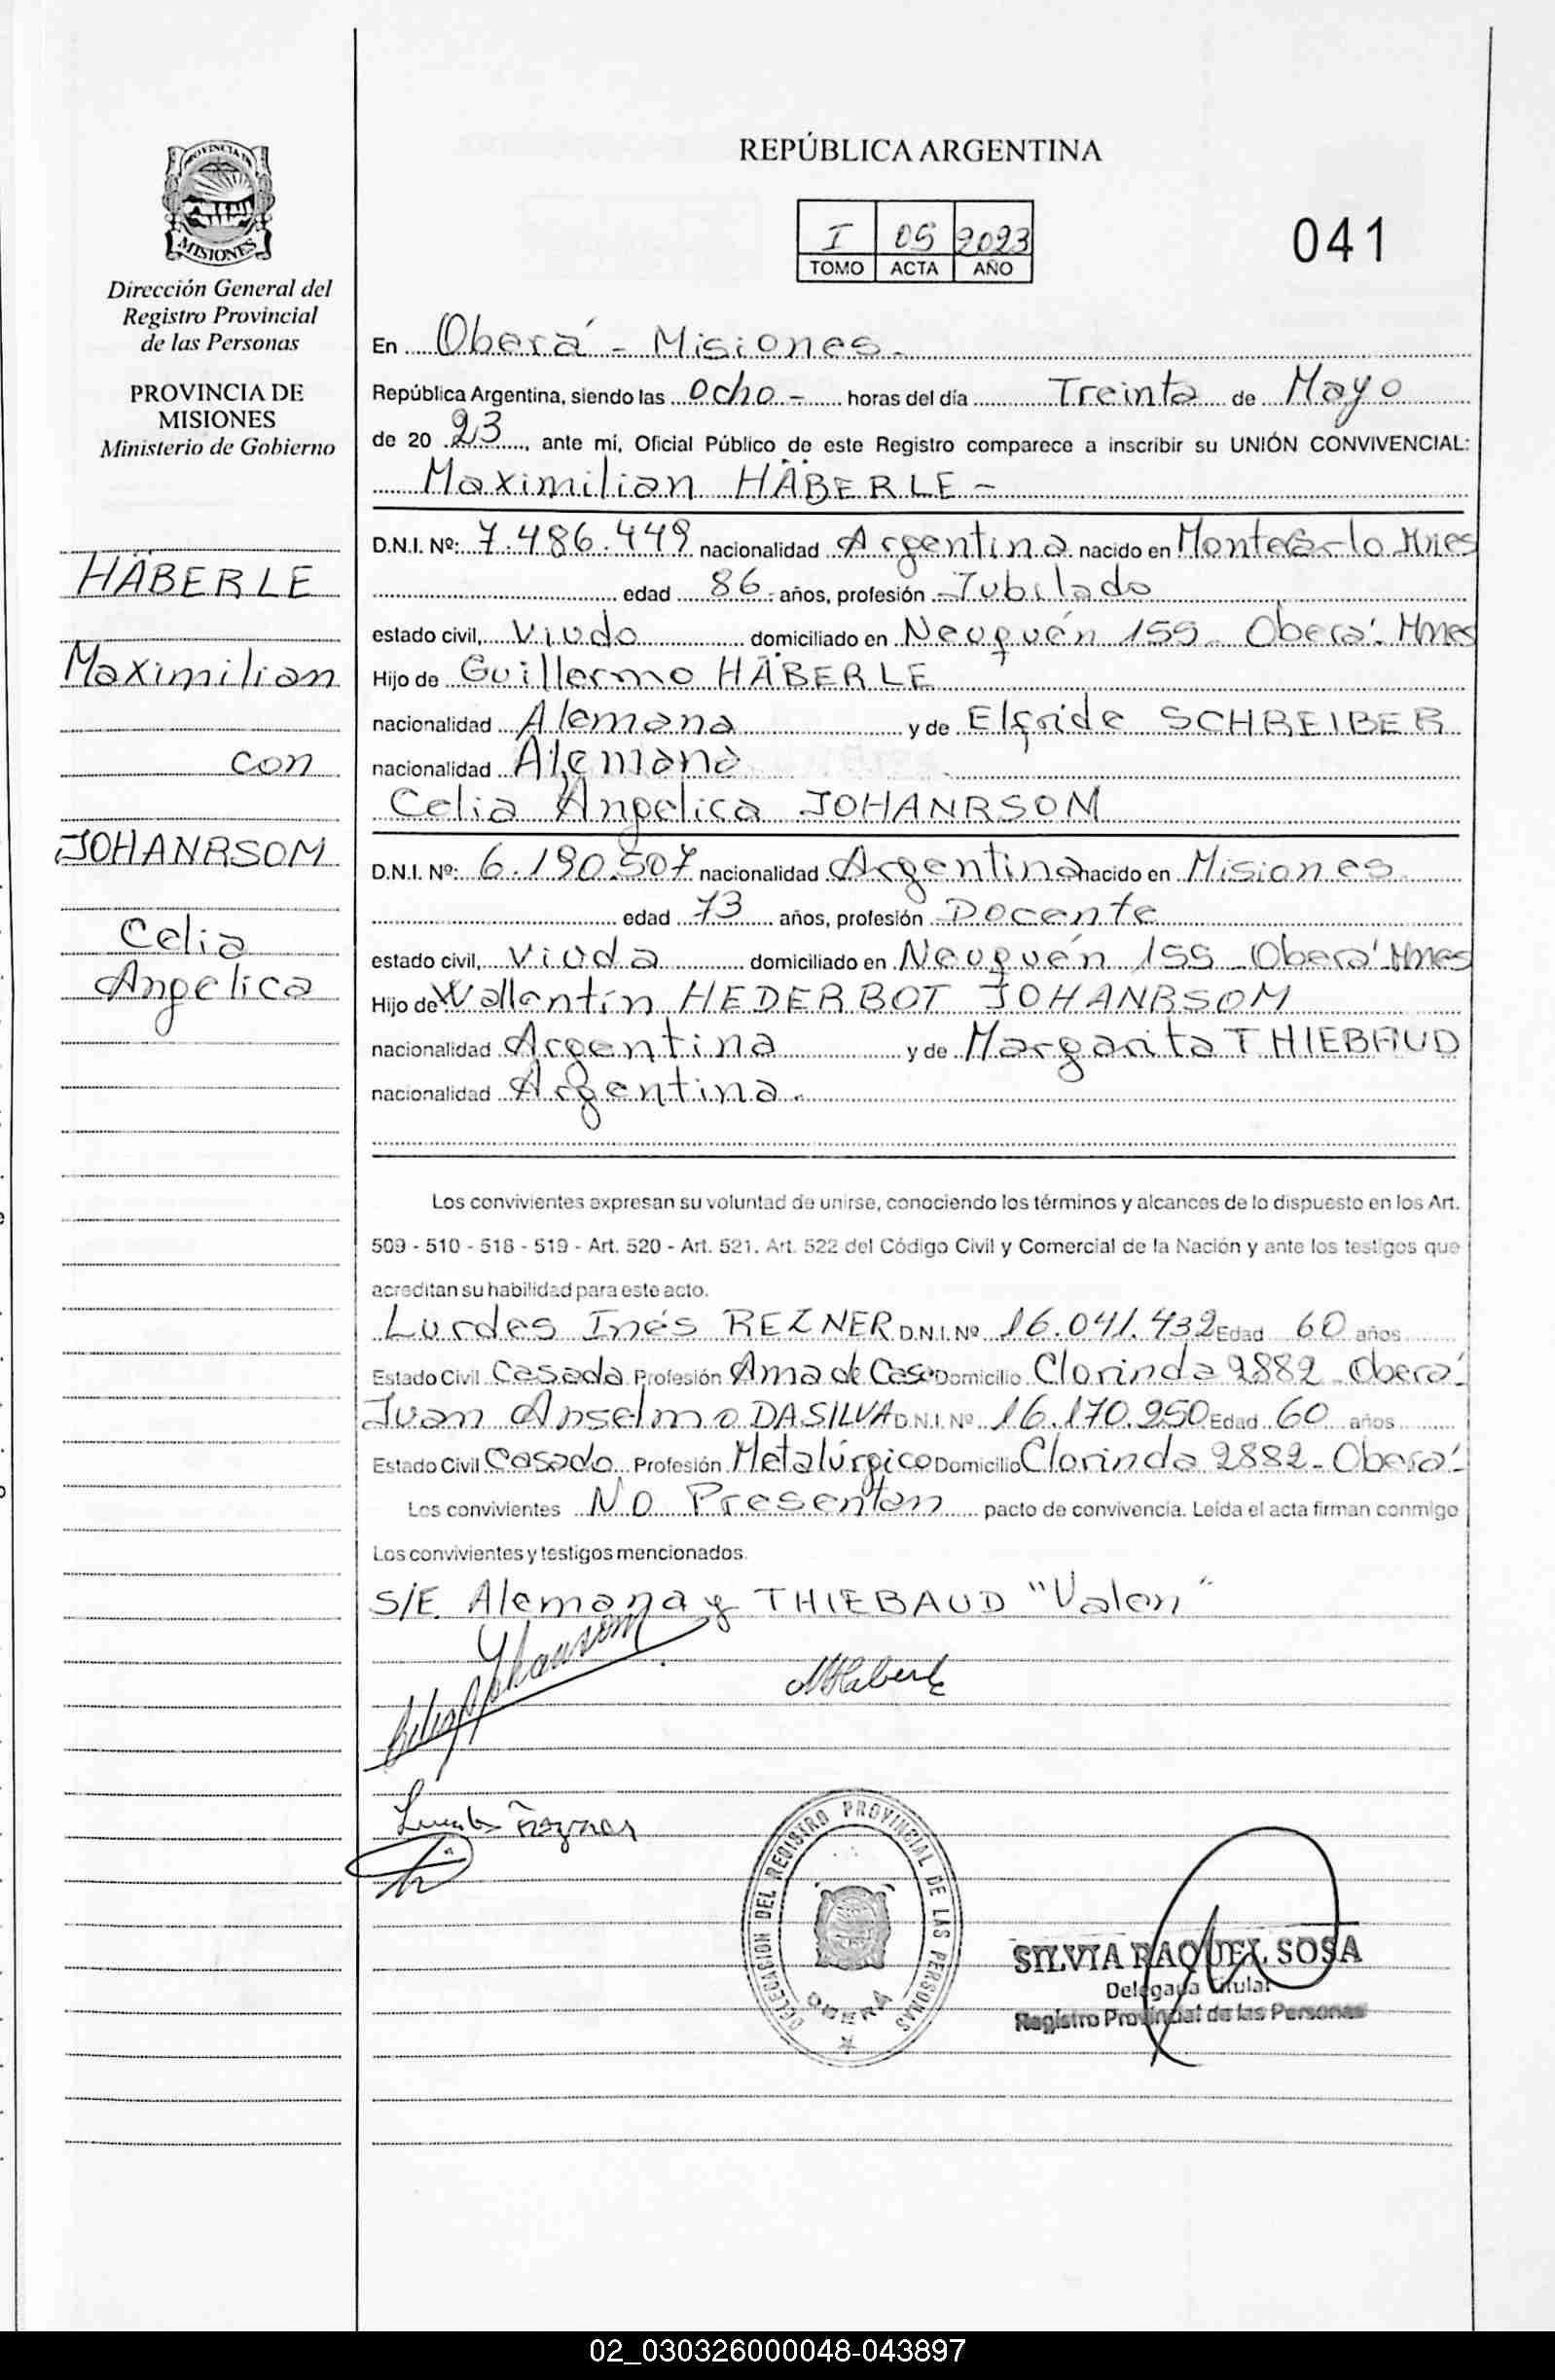 PROVINCIA DE
MISIONES
Dirección General del
Registro Provincial
de las Personas
PROVINCIA DE
MISIONES
Ministerio de Gobierno
HÄBERLE
Maximilian
con
JOHANRSOM
Celia
Angelica
REPÚBLICA ARGENTINA
I 05 2023
TOMO ACTA AÑO
041
En Oberá - Misiones.
República Argentina, siendo las ocho - horas del día Treinta de Mayo
de 20 23, ante mí, Oficial Público de este Registro comparece a inscribir su UNIÓN CONVIVENCIAL:
Maximilian HÄBERLE -
D.N.I. Nº: 7.486.449 nacionalidad Argentina nacido en Montecarlo Mnes
edad 86 - años, profesión Jubilado
estado civil, Viudo domiciliado en Neuquén 155 - Oberá - Mnes
Hijo de Guillermo HÄBERLE
nacionalidad Alemana y de Elfride SCHREIBER
nacionalidad Alemana
Celia Angelica JOHANRSOM
D.N.I. Nº: 6.190.507 nacionalidad Argentina nacido en Misiones
edad 73 años, profesión Docente
estado civil, Viuda domiciliado en Neuquén 155 Oberá Mnes
Hijo de Wallentín HEDERBOT JOHANRSOM
nacionalidad Argentina y de Margarita THIEBAUD
nacionalidad Argentina.
Los convivientes expresan su voluntad de unirse, conociendo los términos y alcances de lo dispuesto en los Art.
509 - 510 - 518 - 519 - Art. 520 - Art. 521. Art. 522 del Código Civil y Comercial de la Nación y ante los testigos que
acreditan su habilidad para este acto.
Lurdes Inés REZNER D.N.I. Nº 16.041.432 Edad 60 años
Estado Civil Casada Profesión Ama de Casa Domicilio Clorinda 2882 Oberá
Juan Anselmo DASILVA D.N.I. Nº 16.170.950 Edad 60 años
Estado Civil Casado Profesión Metalúrgico Domicilio Clorinda 2882 - Oberá
Los convivientes No Presentan pacto de convivencia. Leída el acta firman conmigo
Los convivientes y testigos mencionados.
S/E. Alemana y THIEBAUD "Valen"
DELEGACION DEL REGISTRO PROVINCIAL DE LAS PERSONAS
OBERÁ
SILVIA RAQUEL SOSA
Delegada Titular
Registro Provincial de las Personas
02_030326000048-043897